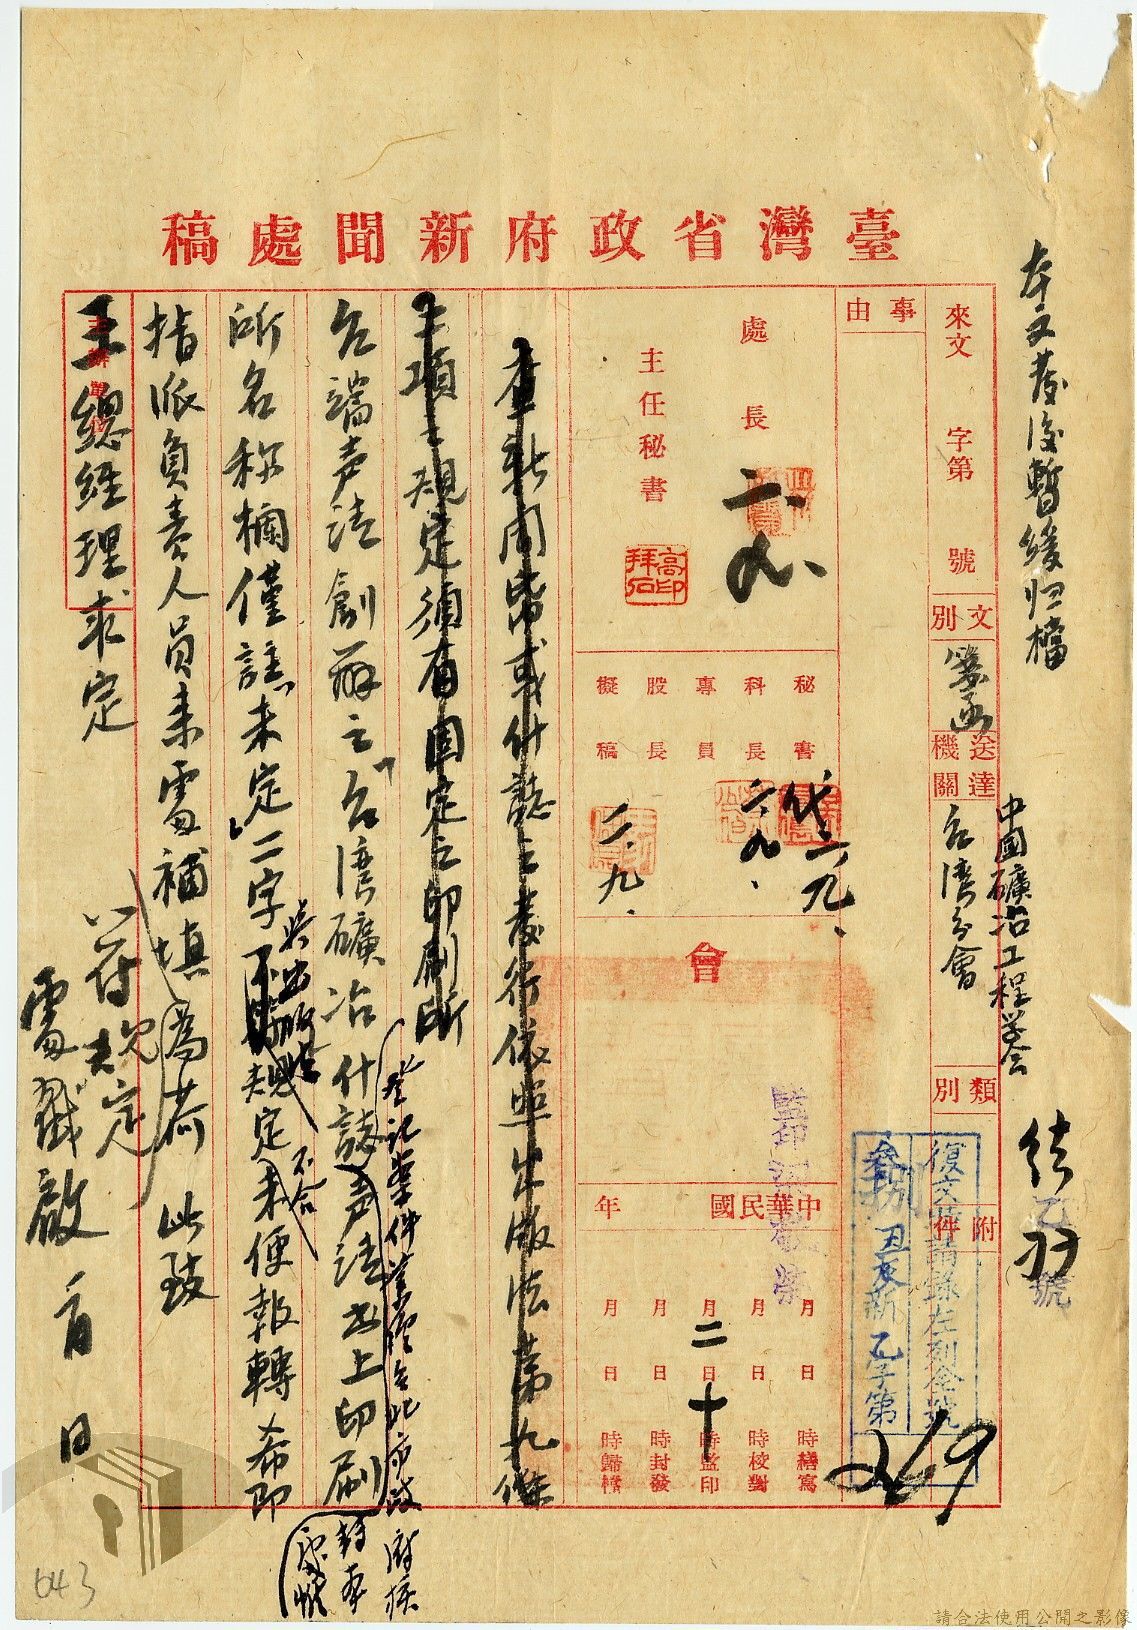 臺灣省政府新聞處稿
本文發後暫緩归檔
來文 字第 號
文別
箋函
送達機關
中國礦冶工程学会
台湾分會
類別
附件
事由
處長
二、九、
主任秘書
高印拜石
秘書
科長
專員
股長
擬稿
代
二、九、
二、九、
二、九、
會
監印
中華民國 年
月 日 時繕寫
月 日 時校對
月 日 時監印
二 十
月 日 時封發
月 日 時歸檔
復文時請錄左列全號
叁捌丑灰新乙字第
號
269
查新聞紙或什誌之發行依照出版法第九條
項之規定須有固定之印刷所
台端声請創辦之「台湾礦冶什誌」声請書上印刷
登記案件業經台北市政府核
轉本
所名称欄僅註「未定」二字
與出版法
規定
不合
未便報轉希即
指派負責人員来處補填
以符規定
為荷此致
王總經理求定
主辦單位
處戳啟 月 日
643
請合法使用公開之影像